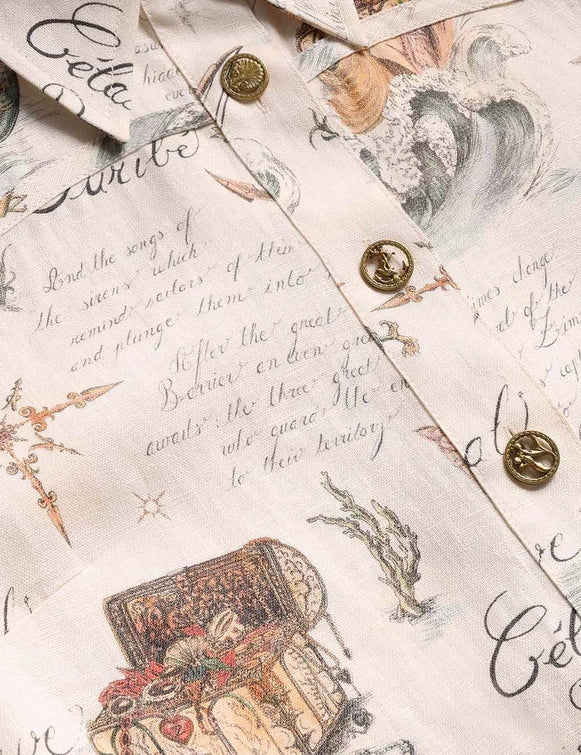 Céla
Caribé
And the songs of
the sirens which
remind sailors of their
and plunge them into
After the great
Barrier an even grea
awaits: the three great
who guard the en
to their territory
imes dange
of the
Céla